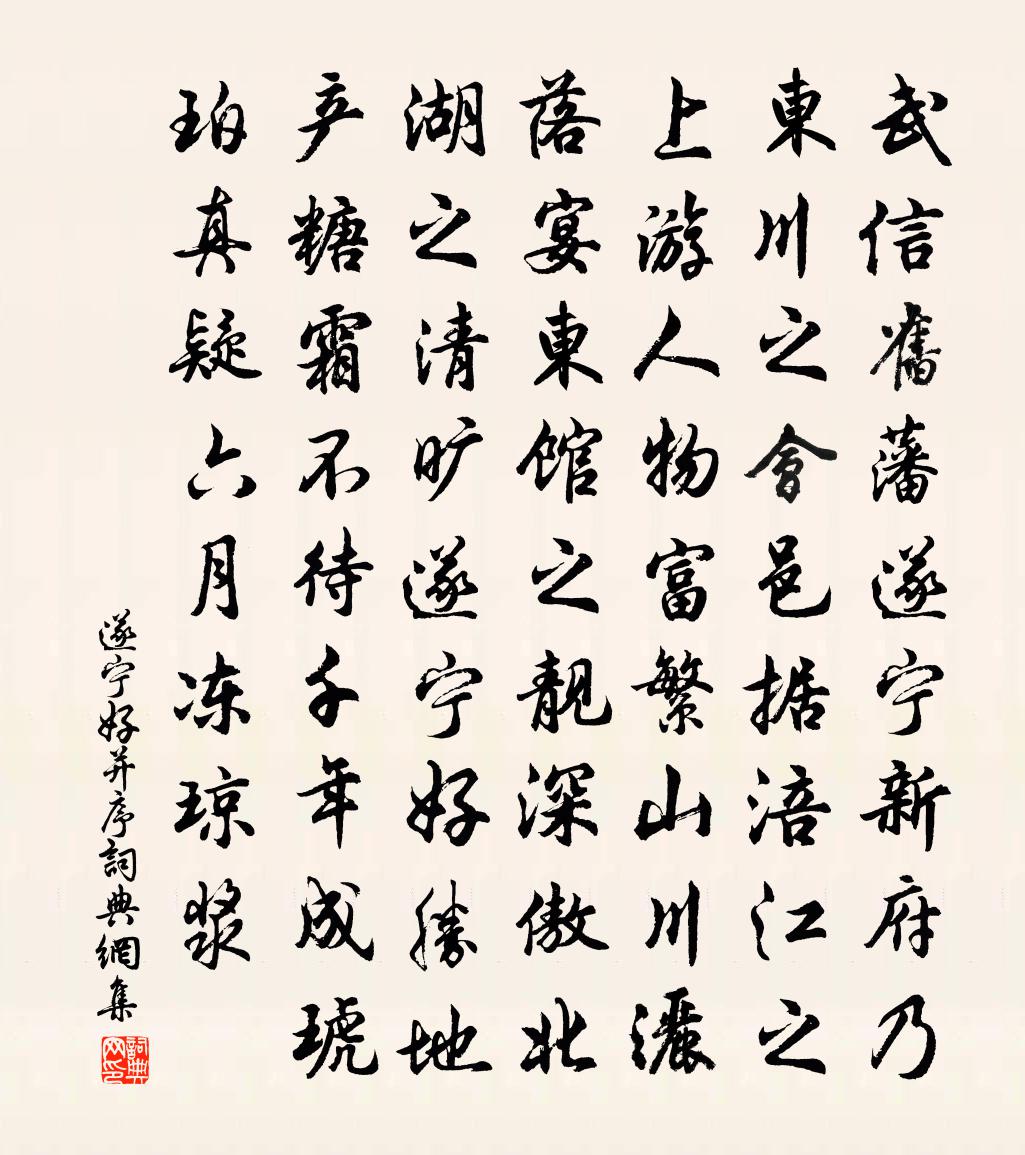 武信舊藩遂宁新府乃
東川之會邑据涪江之
上游人物富繁山川灑
落宴東馆之靓深傲北
湖之清旷遂宁好勝地
产糖霜不待千年成琥
珀真疑六月冻琼浆
遂宁好并序詞典網集
詞典网印